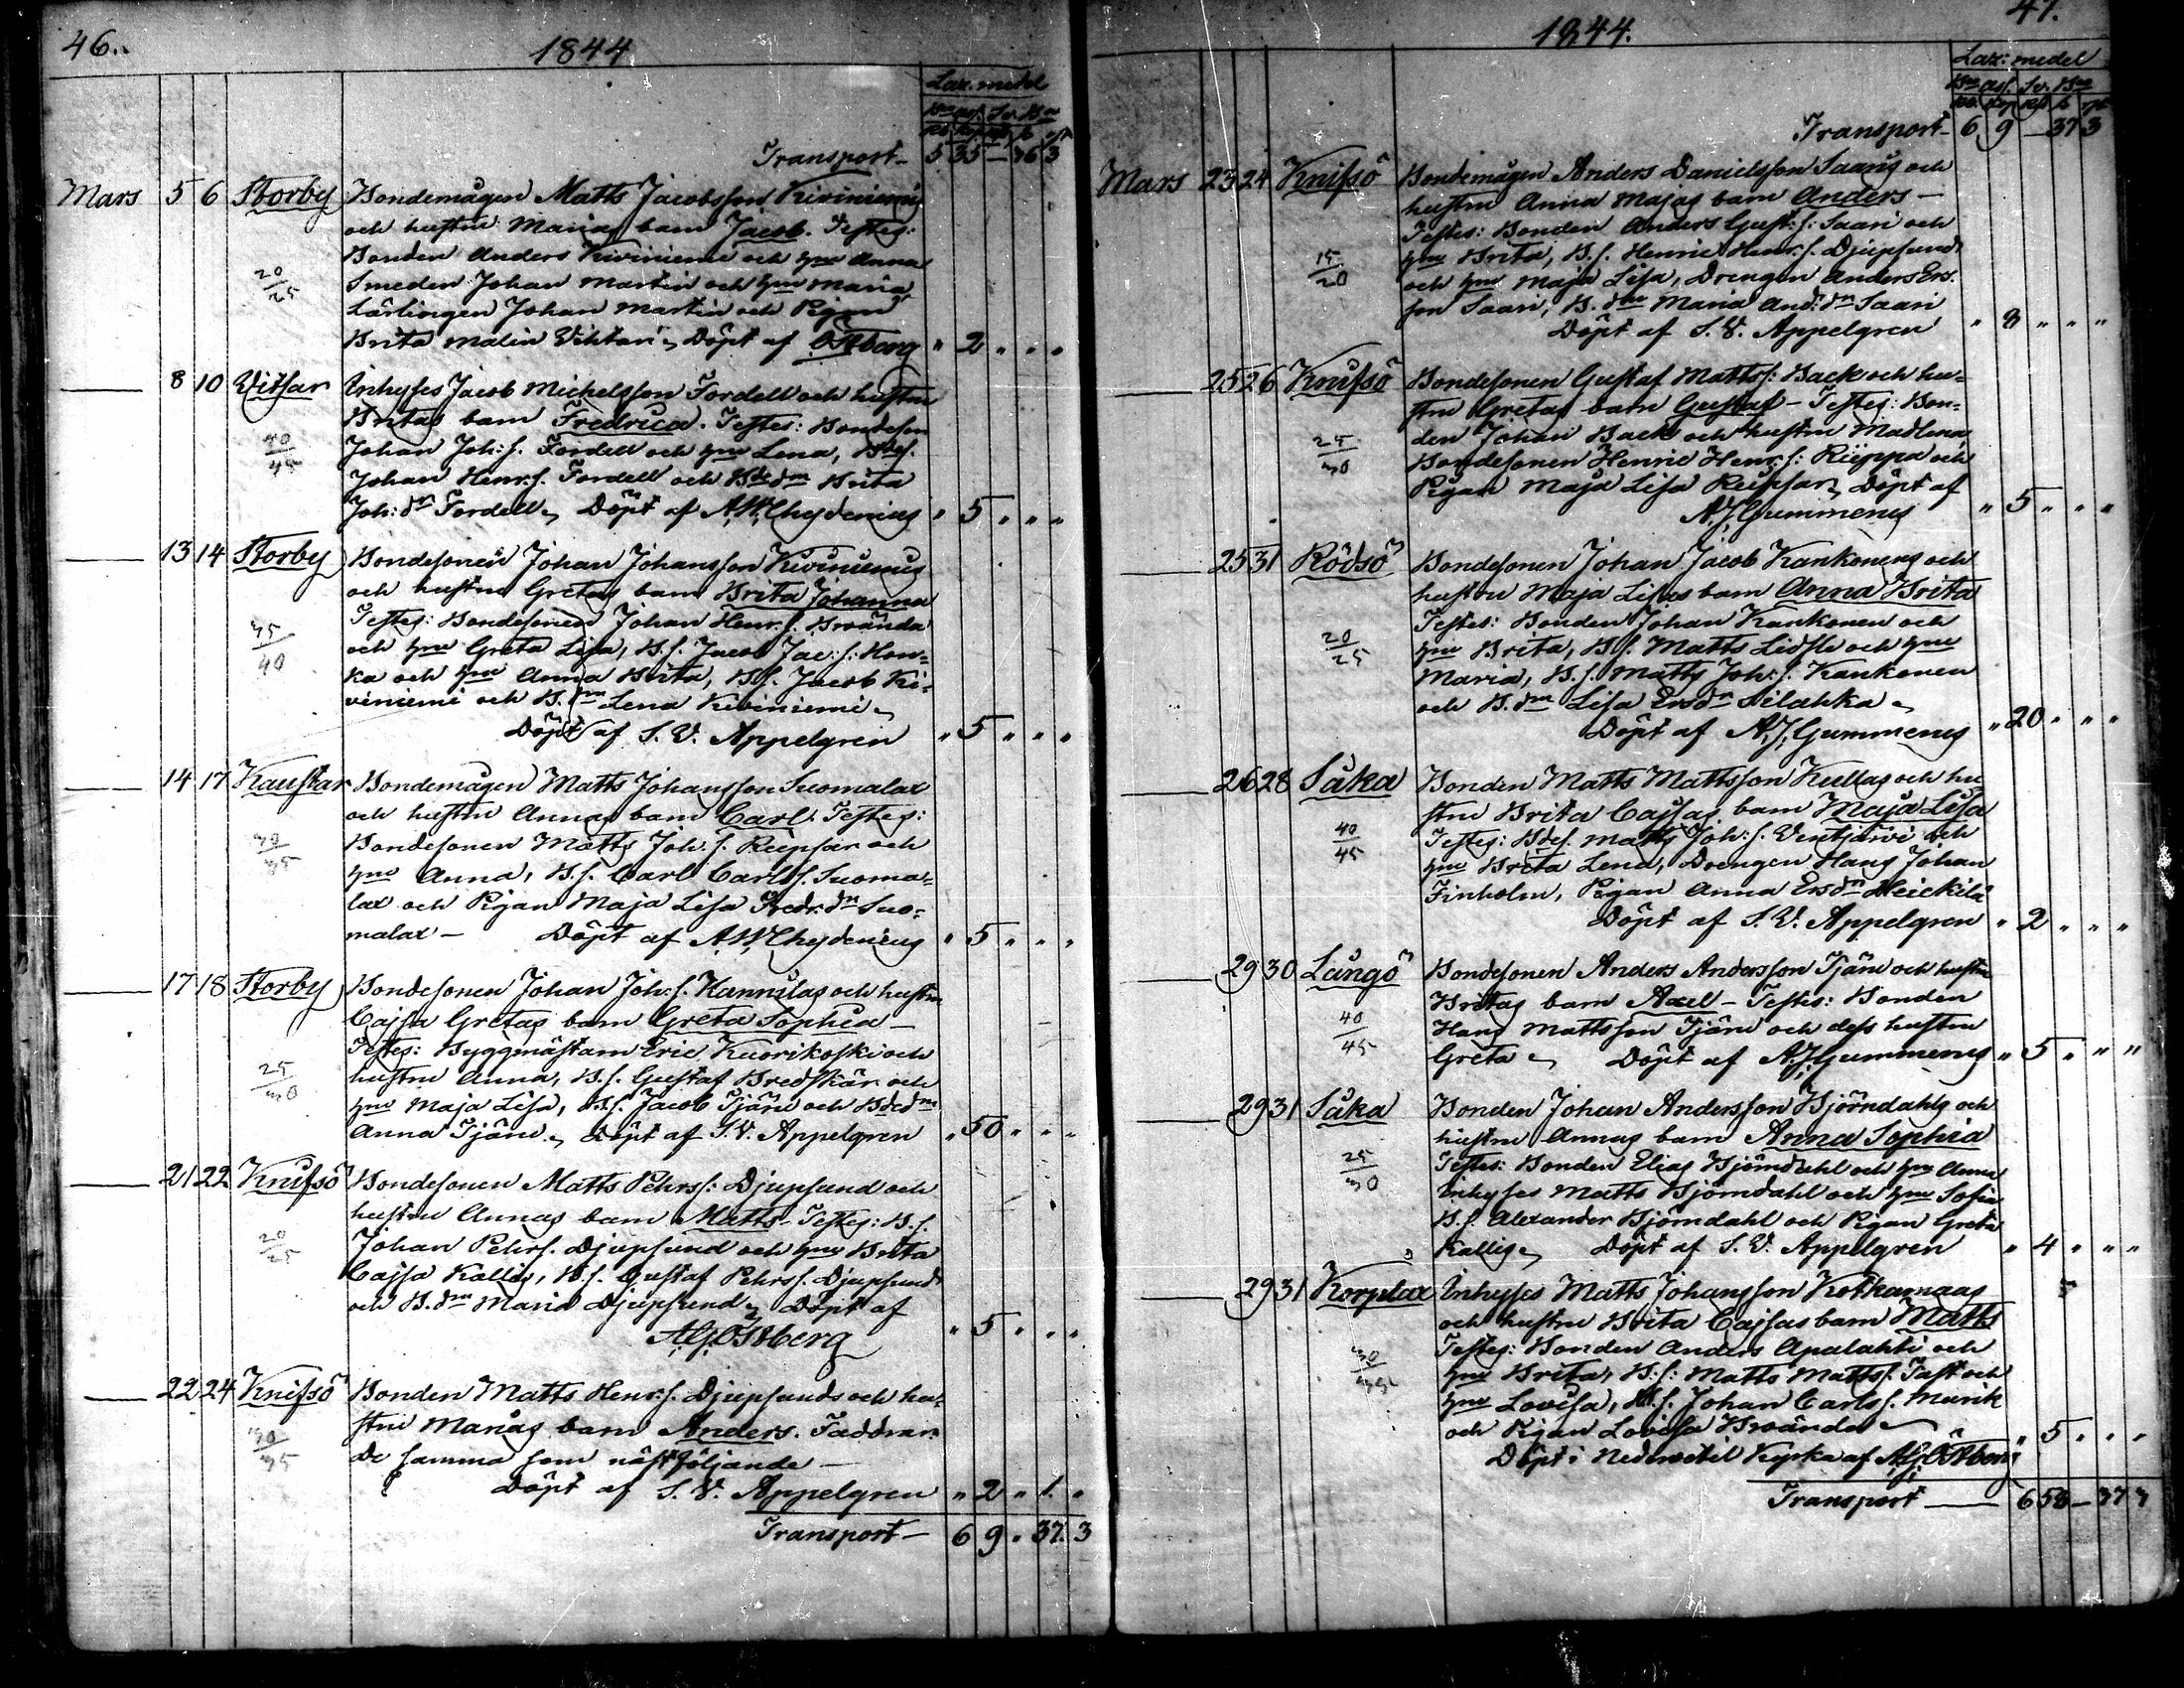 46.
1844
Laz. medel
Bco ass. Sr. Bco
Transport - 5 35 - 36 3
Mars 5 6 Storby Bondemågen Matts Jacobsson Kiviniemis
och hustru Marias barn Jacob. Testes:
Bonden Anders Kiviniemi och hru Anna
20/25 Smeden Johan Martin och hru Maria
Lärlingen Johan Martin och Pigan
Brita Malin Döpt af Östberg " 2 " " "
8 10 Witsar Inhyses Jacob Michelsson Fordell och hustru
Britas barn Fredrica. Testes: Bondeson
40/45 Johan Joh:s. Fordell och hru Lena, Bdes.
Johan Henr:s. Fordell och Bdedn Brita
Joh:dr Fordell, Döpt af A.W. Chydenius " 5 " " "
13 14 Storby Bondesonen Johan Johansson Kiviniemis
och hustru Gretas barn Brita Johanna
Testes: Bondesonen Johan Henr.s. Brända
35/40 och hru Greta Lisa, B.s. Jacob Jac:s: Hon-
ka och hru Anna Brita, B.s. Jacob Ki-
viniemi och B.dn Lena Kiviniemi
Döpt af S.V. Appelgren " 5 " " "
14 17 Kaustar Bondemågen Matts Johansson Suomalax
och hustru Annas barn Carl. Testes:
30/35 Bondesonen Matts Joh.s. Riepsar och
hru Anna, B.s. Carl Carlss. Suoma-
lax och Pigan Maja Lisa Fredr.dr Suo-
malax - Döpt af A.W. Chydenius " 5 " " "
17 18 Storby Bondesonen Johan Joh:s. Hannilas och hustru
Cajsa Gretas barn Greta Sophia -
Testes: Byggmästarn Eric Kuorikoski och
25/30 hustru Anna, B.s. Gustaf Bredskär och
hru Maja Lisa, B.s. Jacob Tjäru och Bdedn
Anna Tjäru. Döpt af S.V. Appelgren " 50 " " "
21 22 Knifsö Bondesonen Matts Pehrss: Djupsund och
hustru Annas barn Matts - Testes: B.s.
20/25 Johan Pehrs. Djupsund och hru Brita
Cajsa Kallis, B.s. Gustaf Pehrss. Djupsund
och B.dn Maria Djupsund, Döpt af
A.G. Östberg " 5 " " "
22 24 Knifsö Bonden Matts Henr:s. Djupsunds och hu-
30/35 stru Marias barn Anders. Faddrar
De samma som nästföljande -
Döpt af S.V. Appelgren " 2 " 1. "
Transport - 6 9 " 37. 3
47.
1844.
Laz: medel
Bco ass. Sr. Bco
Transport - 6 9 - 37 3
Mars 23 24 Knifsö Bondemågen Anders Danielsson Saaris och
hustru Anna Majas barn Anders -
Testes: Bonden Anders Gust:s: Saari och
15/20 hru Brita, B.s. Henric Henr.s. Djupsund
och hru Maja Lisa, Drengen Anders Ers-
son Saari, B.dn Maria And:dr Saari
Döpt af S.V. Appelgren " 8 " " "
25 26 Knifsö Bondesonen Gustaf Mattss: Back och hu-
stru Gretas barn Gustaf - Testes: Bon-
25/30 den Johan Back och hustru Madlena
Bondesonen Henric Henr.s: Rieppa och
Pigan Maja Lisa Riepsar, Döpt af
A.J. Gummerus " 5 " " "
25 31 Rödsö Bondesonen Johan Jacob Kankonens och
hustru Maja Lisas barn Anna Brita
Testes: Bonden Johan Kankonen och
20/25 hru Brita, B.s. Matts Lidsle och hru
Maria, B.s. Matts Joh:s. Kankonen
och B.dn Lisa Ersdr Silahka
Döpt af A.J. Gummerus " 20 " " "
26 28 Såka Bonden Matts Mattsson Kullas och hu
stru Brita Cajsas barn Maja Lisa
40/45 Testes: Bdes. Matts Joh:s. Ventjärvi och
hru Brita Lena, Drengen Hans Johan
Finholm, Pigan Anna Ersdr Heickilä
Döpt af S.V. Appelgren " 2 " " "
29 30 Långö Bondesonen Anders Andersson Tjäru och hustru
Britas barn Axel - Testes: Bonden
40/45 Hans Mattsson Tjäru och dess hustru
Greta, Döpt af A.J. Gummerus " 5 " " "
29 31 Såka Bonden Johan Andersson Björndahls och
hustru Annas barn Anna Sophia
25/30 Testes: Bonden Elias Björndahl och hru Anna
Inhyses Matts Björndahl och hru Sofia
B.s. Alexander Björndahl och Pigan Greta
Kallis, Döpt af S.V. Appelgren " 4 " " "
29 31 Korplax Inhyses Matts Johansson Kotkamaas
och hustru Brita Cajsas barn Matts
30/35 Testes: Bonden Anders Apalahti och
hru Brita, B:s: Matts Matts. Tast och
hru Lovisa, B.s. Johan Carlss. Murik
och Pigan Lovisa Brända
Döpt i Nedervetil Kyrka af A.G. Östberg " 5 " " "
Transport - 6 58 - 37 3